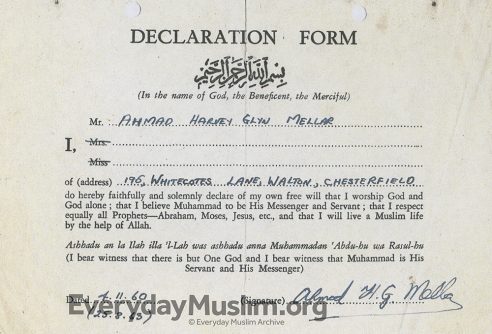 DECLARATION FORM
بسم الله الرحمن الرحيم
(In the name of God, the Beneficent, the Merciful)
Mr. AHMAD HARVEY GLYN MELLAR
I, Mrs.
Miss
of (address) 196, WHITECOTES LANE, WALTON, CHESTERFIELD
do hereby faithfully and solemnly declare of my own free will that I worship God and
God alone; that I believe Muhammad to be His Messenger and Servant; that I respect
equally all Prophets—Abraham, Moses, Jesus, etc., and that I will live a Muslim life
by the help of Allah.
Ashhadu an la Ilah illa 'l-Lah was ashhadu anna Muhammadan 'Abdu-hu wa Rasul-hu
(I bear witness that there is but One God and I bear witness that Muhammad is His
Servant and His Messenger)
Dated 11.60 (Signature) Ahmad H.G. Mellar
EverydayMuslim.org
© Everyday Muslim Archive